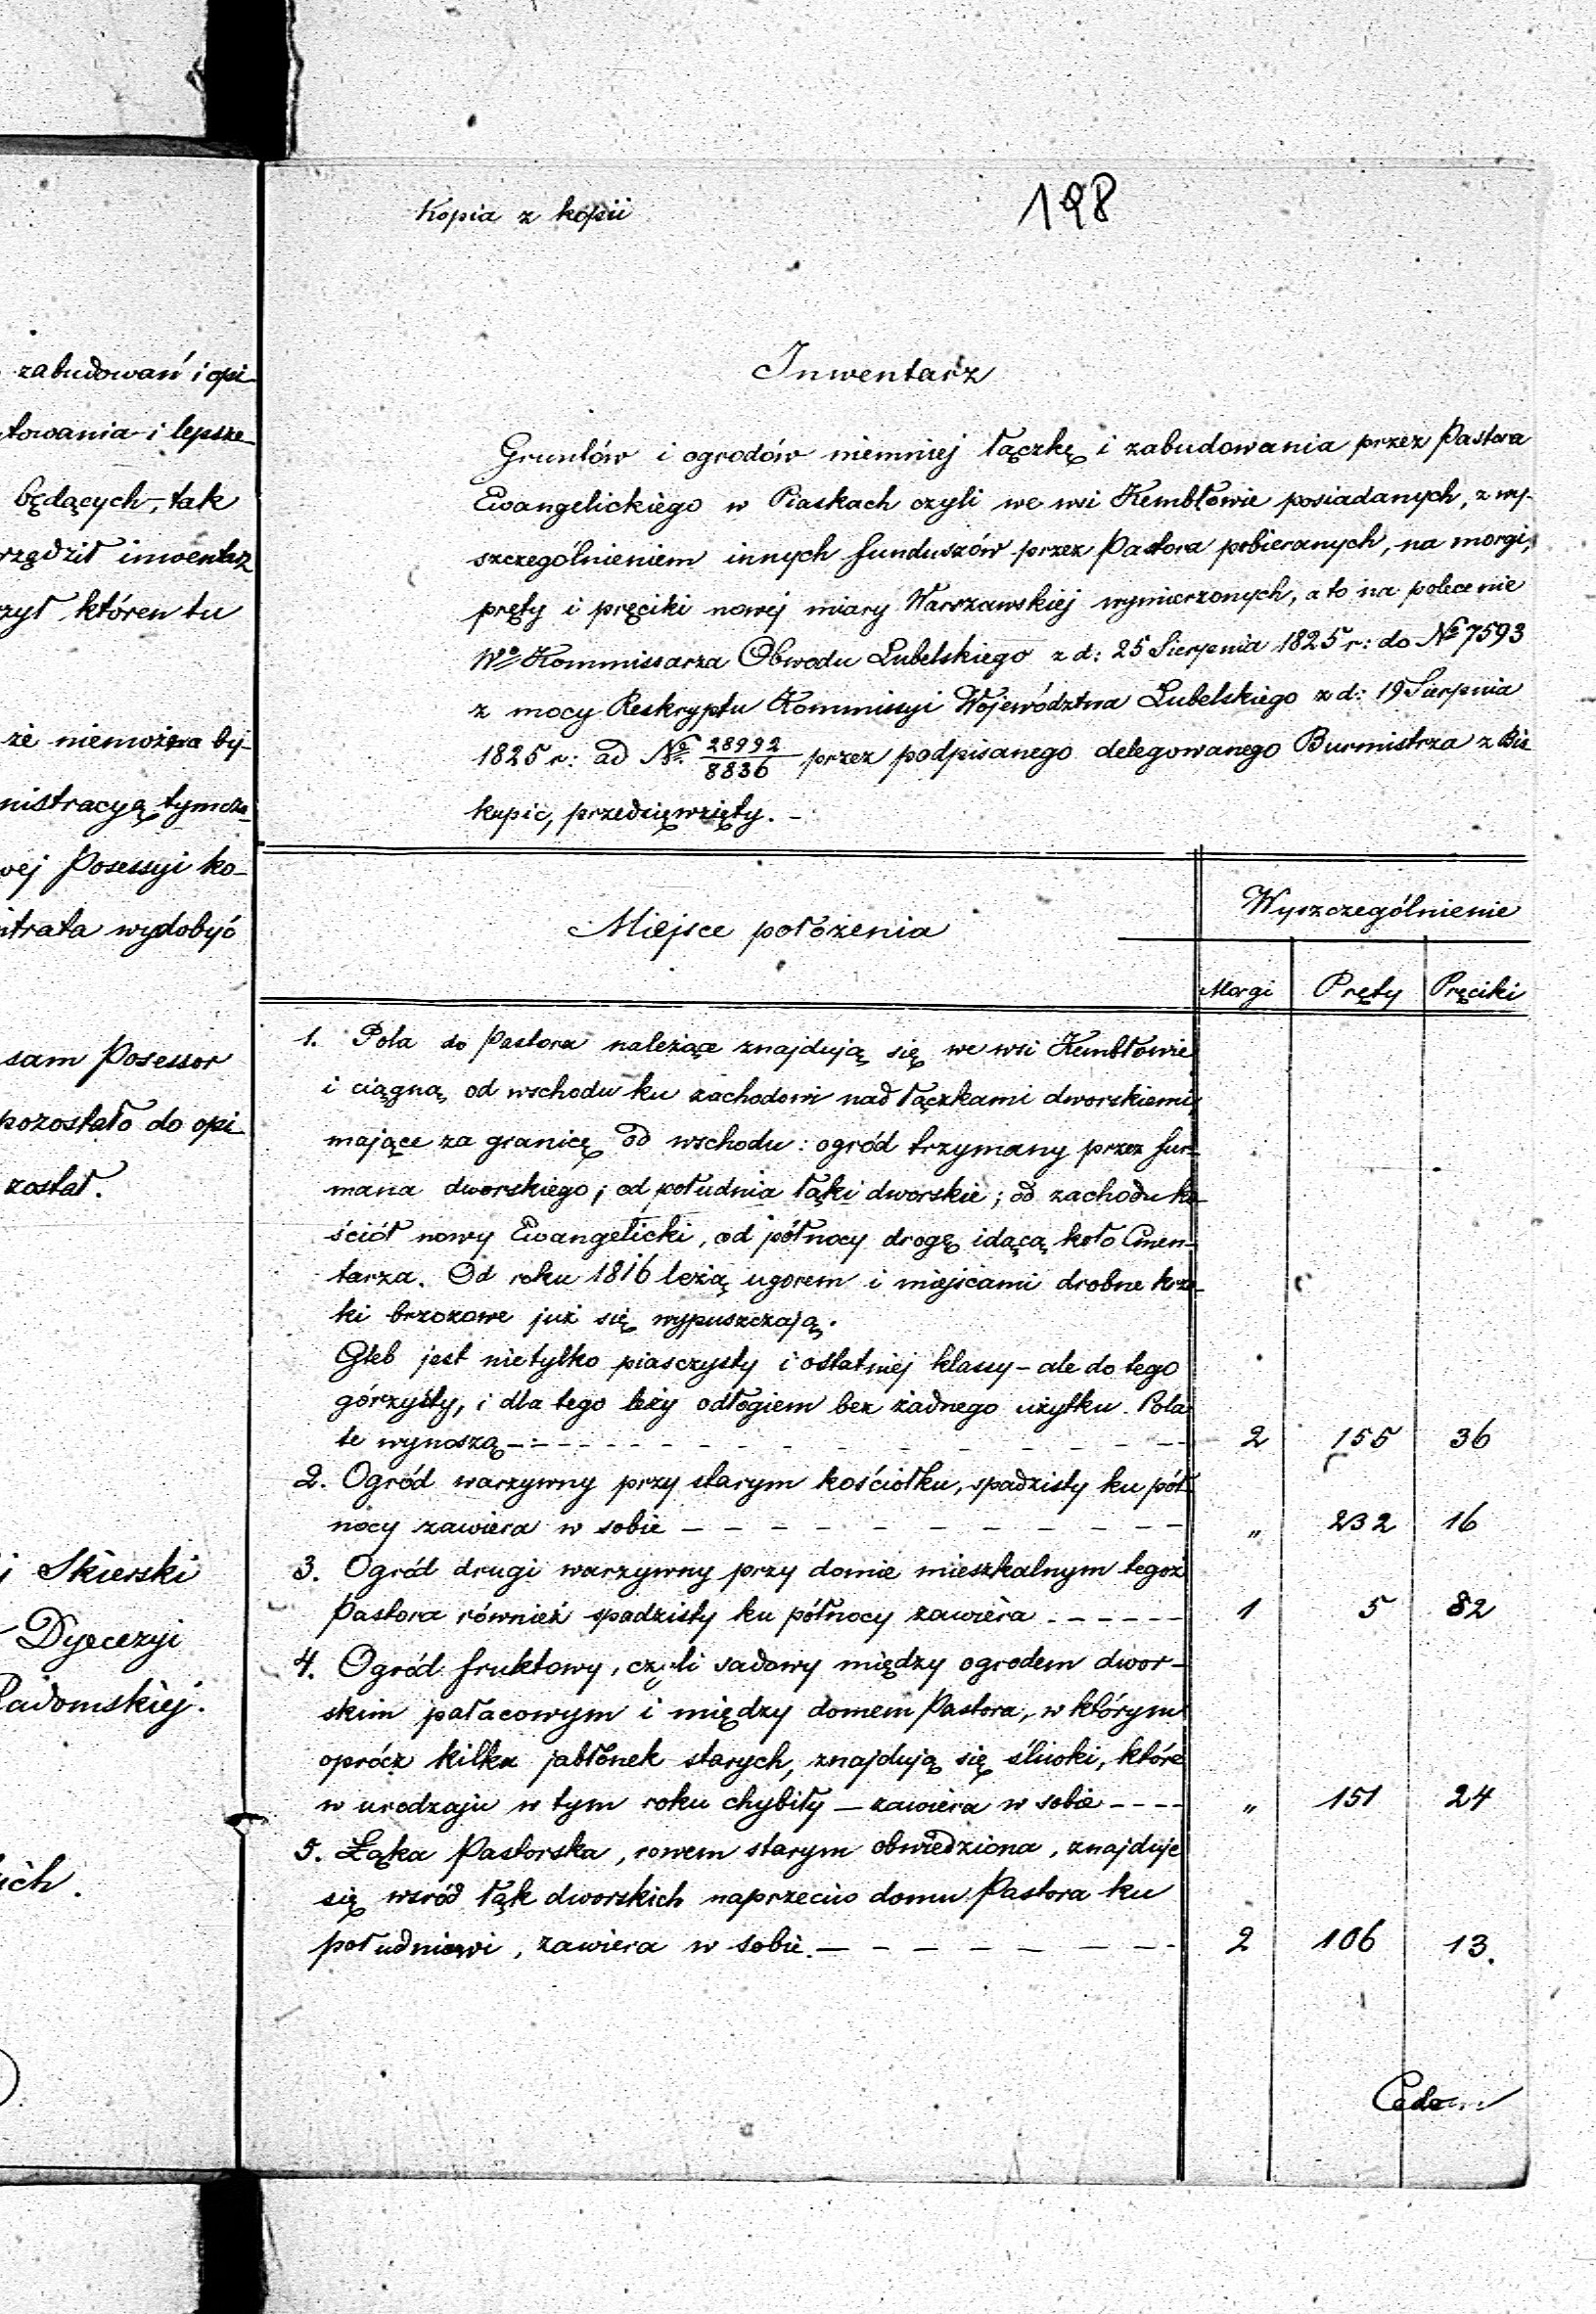 zabudowań i opi-
towania i lepsze-
będących, tak
rządził inwentarz
rzył któren tu
że niemożna by-
nistracyą tymcza-
wej Posessyi ko-
ntrata wydobyć
sam Posessor
pozostało do opi-
został.
j Skierski
Dyecezyi
Radomskiej.
ich.
Kopia z kopii
198
Inwentarz
Gruntów i ogrodów niemniej łączkę i zabudowania przez Pastora
Ewangelickiego w Piaskach czyli we wsi Kembłowie posiadanych, z wy-
szczególnieniem innych funduszów przez Pastora pobieranych, na morgi,
pręty i pręciki nowej miary Warszawskiej wymierzonych, a to na polecenie
Wo Kommissarza Obwodu Lubelskiego z d: 25 Sierpnia 1825 r: do No 7593
z mocy Reskryptu Kommissyi Województwa Lubelskiego z d: 19 Sierpnia
1825 r: ad No 28992/8836 przez podpisanego delegowanego Burmistrza z Bis-
kupic, przedsięwzięty. -
Miejsce położenia
Wyszczególnienie
Morgi Pręty Pręciki
1. Pola do Pastora należące znajdują się we wsi Kembłowie
i ciągną od wschodu ku zachodowi nad łączkami dworskiemi,
mające za granicę od wschodu: ogród trzymany przez fur-
mana dworskiego; od południa łąki dworskie; od zachodu ko-
ściół nowy Ewangelicki, od północy drogę idącą koło Cmen-
tarza. Od roku 1816 leżą ugorem i miejscami drobne krza-
ki brzozowe już się wypuszczają.
Gleb jest nietylko piasczysty i ostatniej klassy - ale do tego
górzysty, i dla tego leży odłogiem bez żadnego użytku. Pola
te wynoszą - - - 2 155 36
2. Ogród warzywny przy starym kościołku, spadzisty ku pół-
nocy zawiera w sobie - - - " 232 16
3. Ogród drugi warzywny przy domie mieszkalnym tegoż
Pastora również spadzisty ku północy zawiera - - - 1 5 82
4. Ogród fruktowy, czyli sadowy między ogrodem dwor-
skim pałacowym i między domem Pastora, w którym
oprócz kilka jabłonek starych, znajdują się śliwki, które
w urodzaju w tym roku chybiły - zawiera w sobie - - - " 151 24
5. Łąka Pastorska, rowem starym obwiedziona, znajduje
się wsród łąk dworskich naprzeciw domu Pastora ku
południowi, zawiera w sobie. - - - 2 106 13.